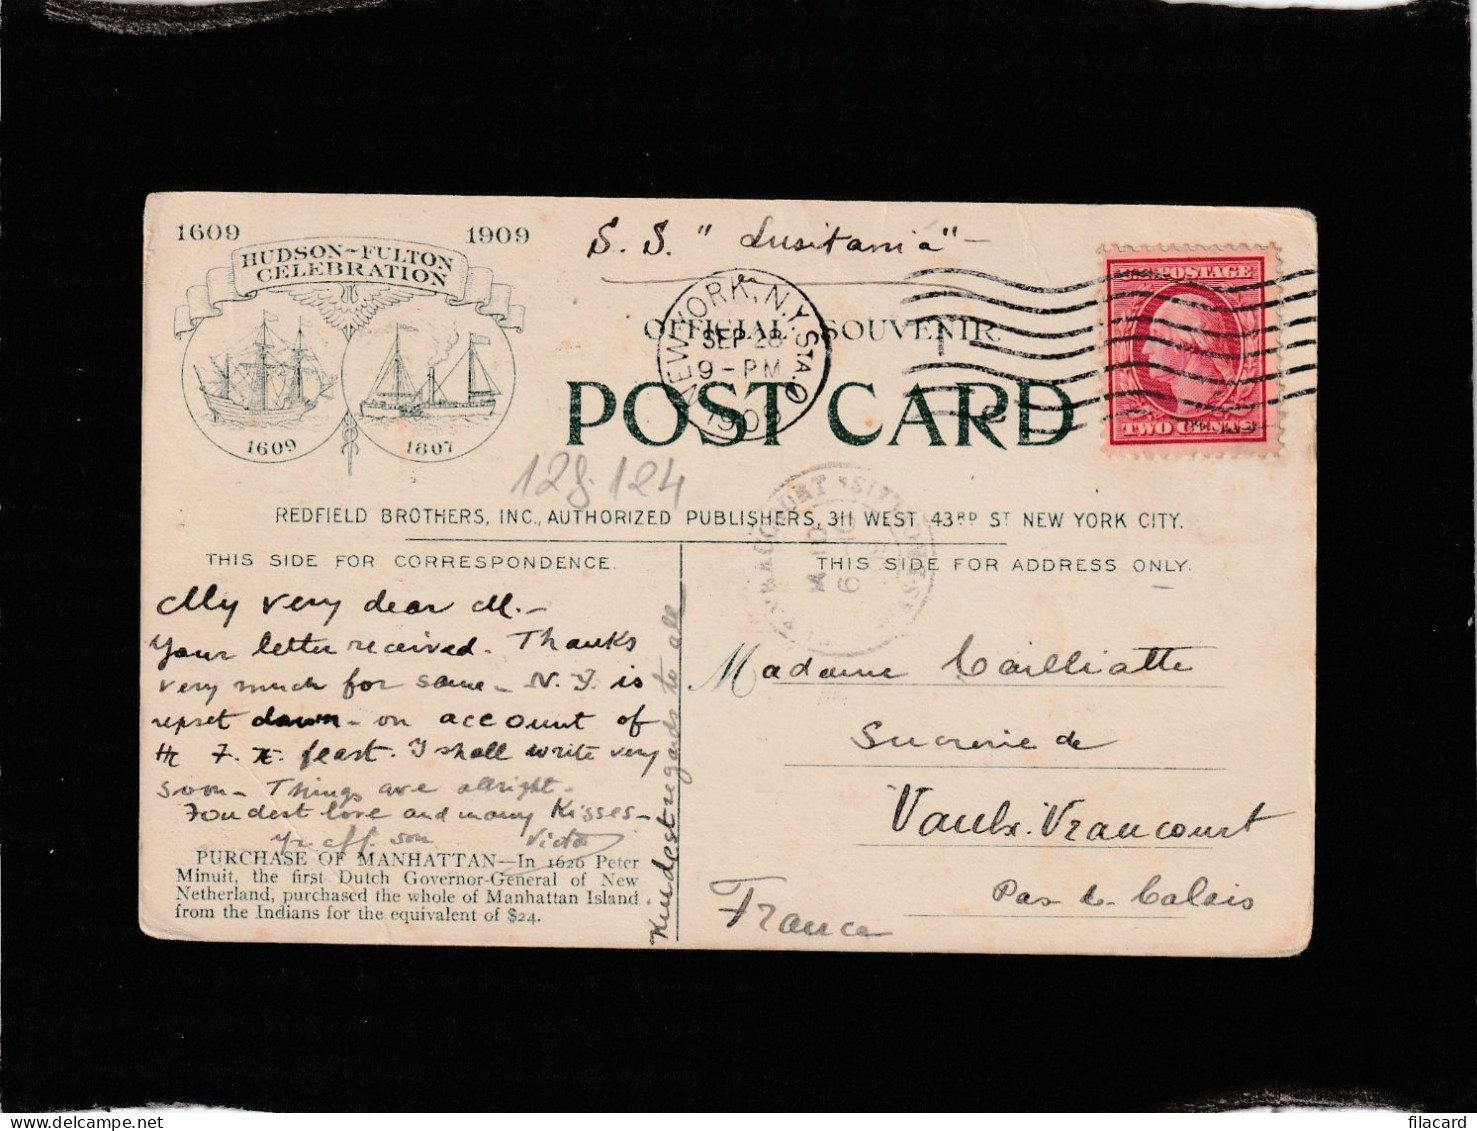 1609
1909
HUDSON-FULTON
CELEBRATION
1609
1807
S. S. "Lusitania" -
NEW YORK, N.Y. STA. O
SEP 28
9-PM
1909
OFFICIAL SOUVENIR
POST CARD
POSTAGE
TWO CENTS
128.124
REDFIELD BROTHERS, INC., AUTHORIZED PUBLISHERS, 311 WEST 43RD ST NEW YORK CITY.
THIS SIDE FOR CORRESPONDENCE.
THIS SIDE FOR ADDRESS ONLY.
My very dear M. -
Your letter received. Thanks
very much for same - N. Y. is
upset down - on account of
H. F. feast. I shall write very
soon - Things are allright -
Fondest love and many Kisses -
yr aff. son Victor
Kindest regards to all
PURCHASE OF MANHATTAN—In 1626 Peter
Minuit, the first Dutch Governor-General of New
Netherland, purchased the whole of Manhattan Island
from the Indians for the equivalent of $24.
Madame Cailliatte
Sucrerie de
Vaulx-Vraucourt
Pas de Calais
France
filacard